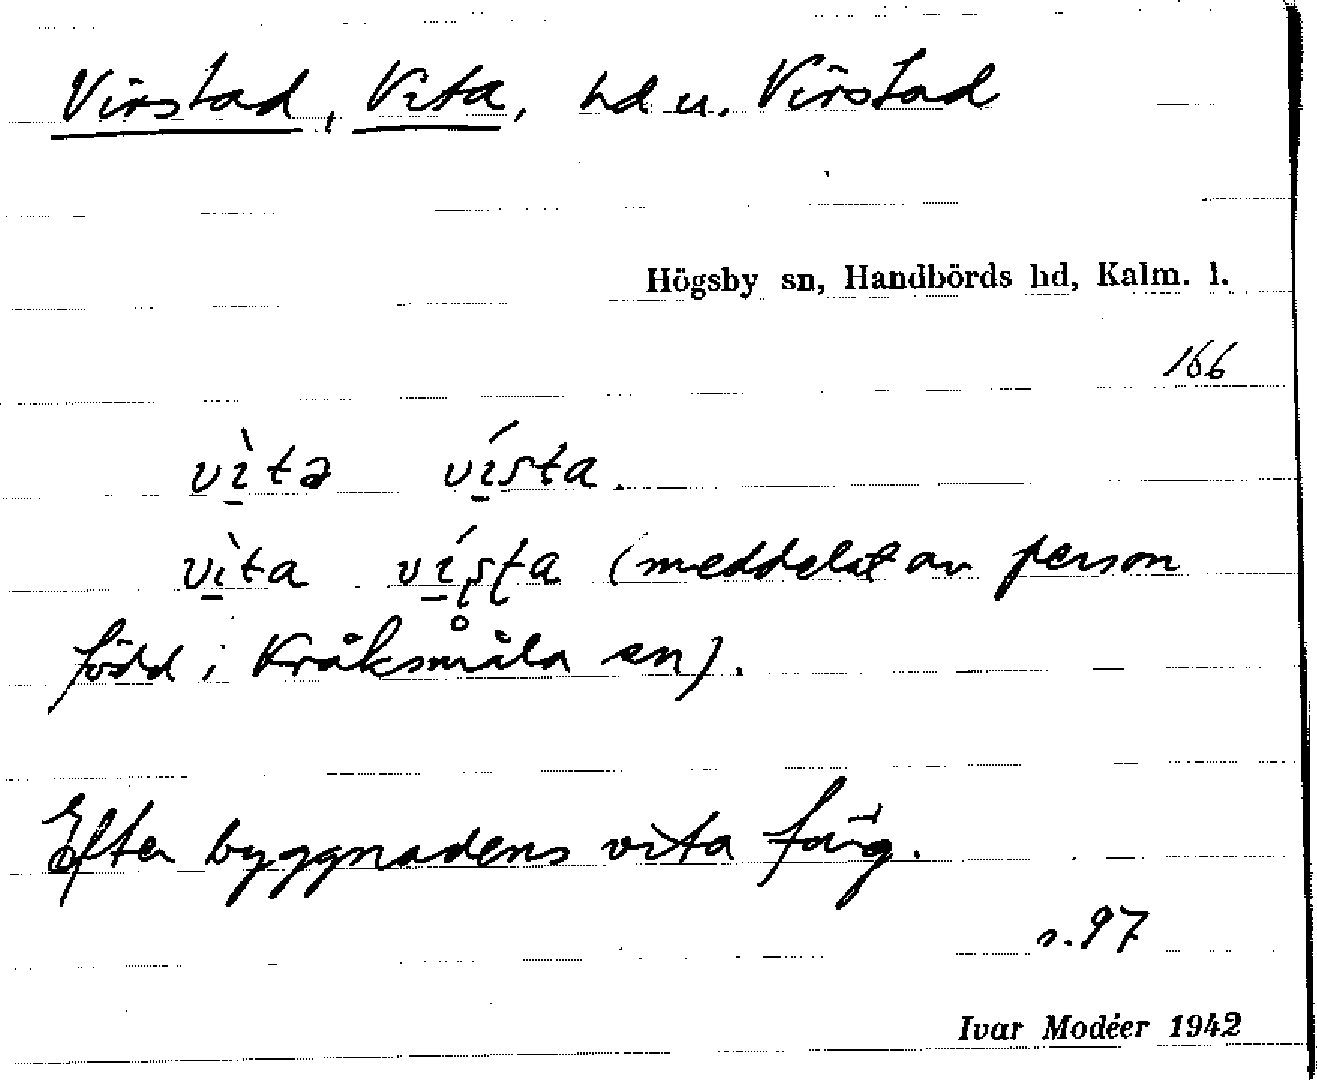 Virstad, Vita, hd u. Virstad
Högsby sn, Handbörds hd, Kalm. l.
166
vı̱̀tə vı̱́sta.
vı̱̀ta vı̱́ʂʈa (meddelat av person
född i Kråksmåla sn).
Efter byggnadens vita färg.
s. 97
Ivar Modéer 1942